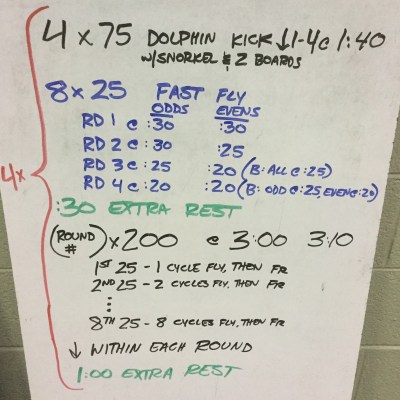 4 x 75 DOLPHIN KICK ↓1-4 @ 1:40
w/SNORKEL & 2 BOARDS
8 x 25 FAST FLY
ODDS EVENS
RD 1 @ :30 :30
RD 2 @ :30 :25
RD 3 @ :25 :20 (B: ALL @ :25)
RD 4 @ :20 :20 (B: ODD @ :25, EVEN @ :20)
4x
:30 EXTRA REST
(ROUND #) x 200 @ 3:00 3:10
1ST 25 - 1 CYCLE FLY, THEN FR
2ND 25 - 2 CYCLES FLY, THEN FR
⋮
8TH 25 - 8 CYCLES FLY, THEN FR
↓ WITHIN EACH ROUND
1:00 EXTRA REST